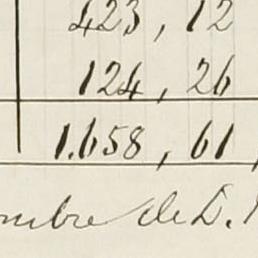 423, 12
124, 26
1.658, 61,
mbre de D.